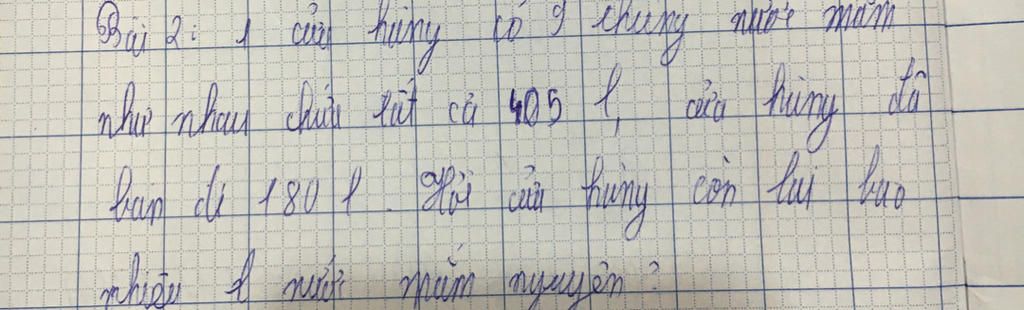 Bài 2: 1 cửa hàng có 9 thùng nước mắm
như nhau chứa tất cả 405 l, cửa hàng đã
bán đi 180 l. Hỏi cửa hàng còn lại bao
nhiêu l nước mắm nguyên?